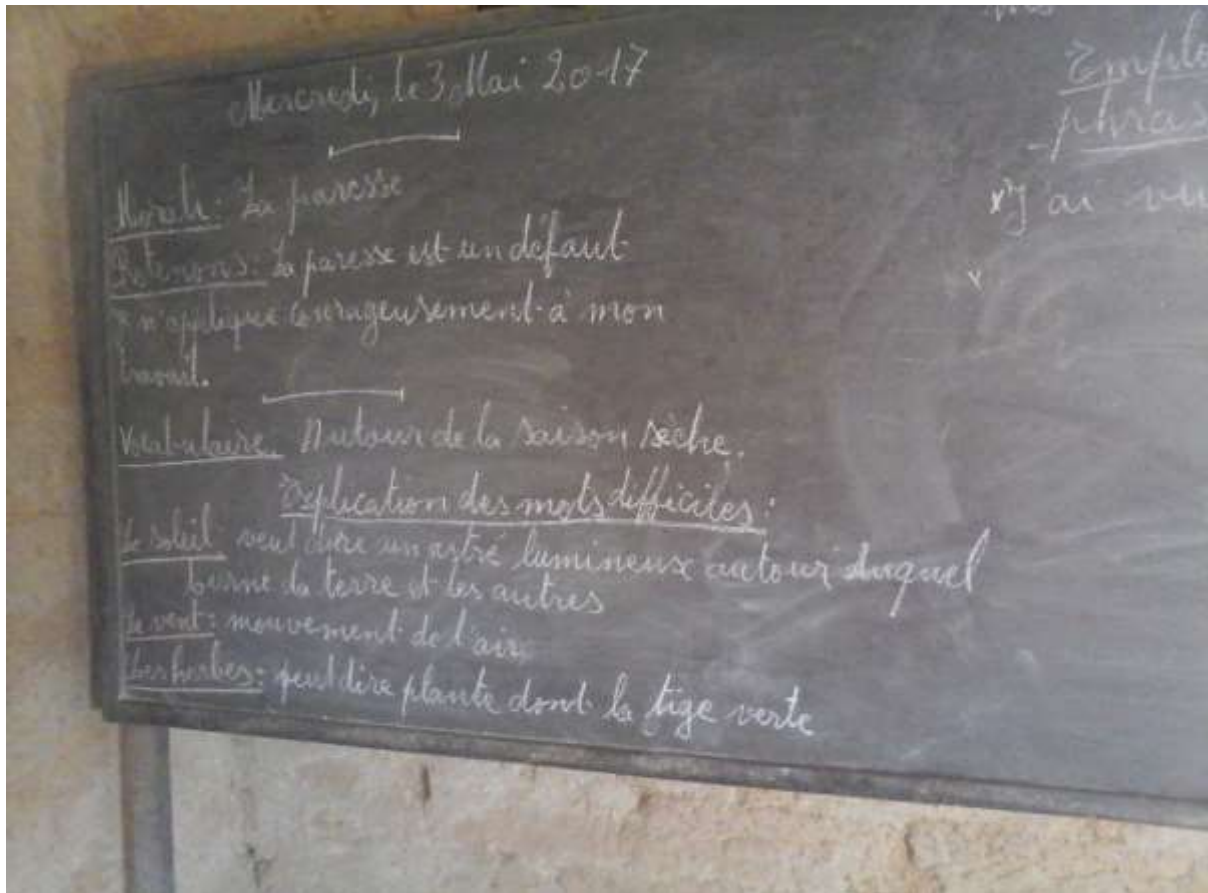 Mercredi, le 3 Mai 2017
Morale: La paresse
Retenons: La paresse est un défaut
m'applique courageusement à mon
travail.
Vocabulaire. Autour de la saison sèche.
Explication des mots difficiles:
Le soleil veut dire un astre lumineux autour duquel
tourne la terre et les autres
Le vent: mouvement de l'air
Les herbes: veut dire plante dont la tige verte
Emplo
phras
J'ai vu